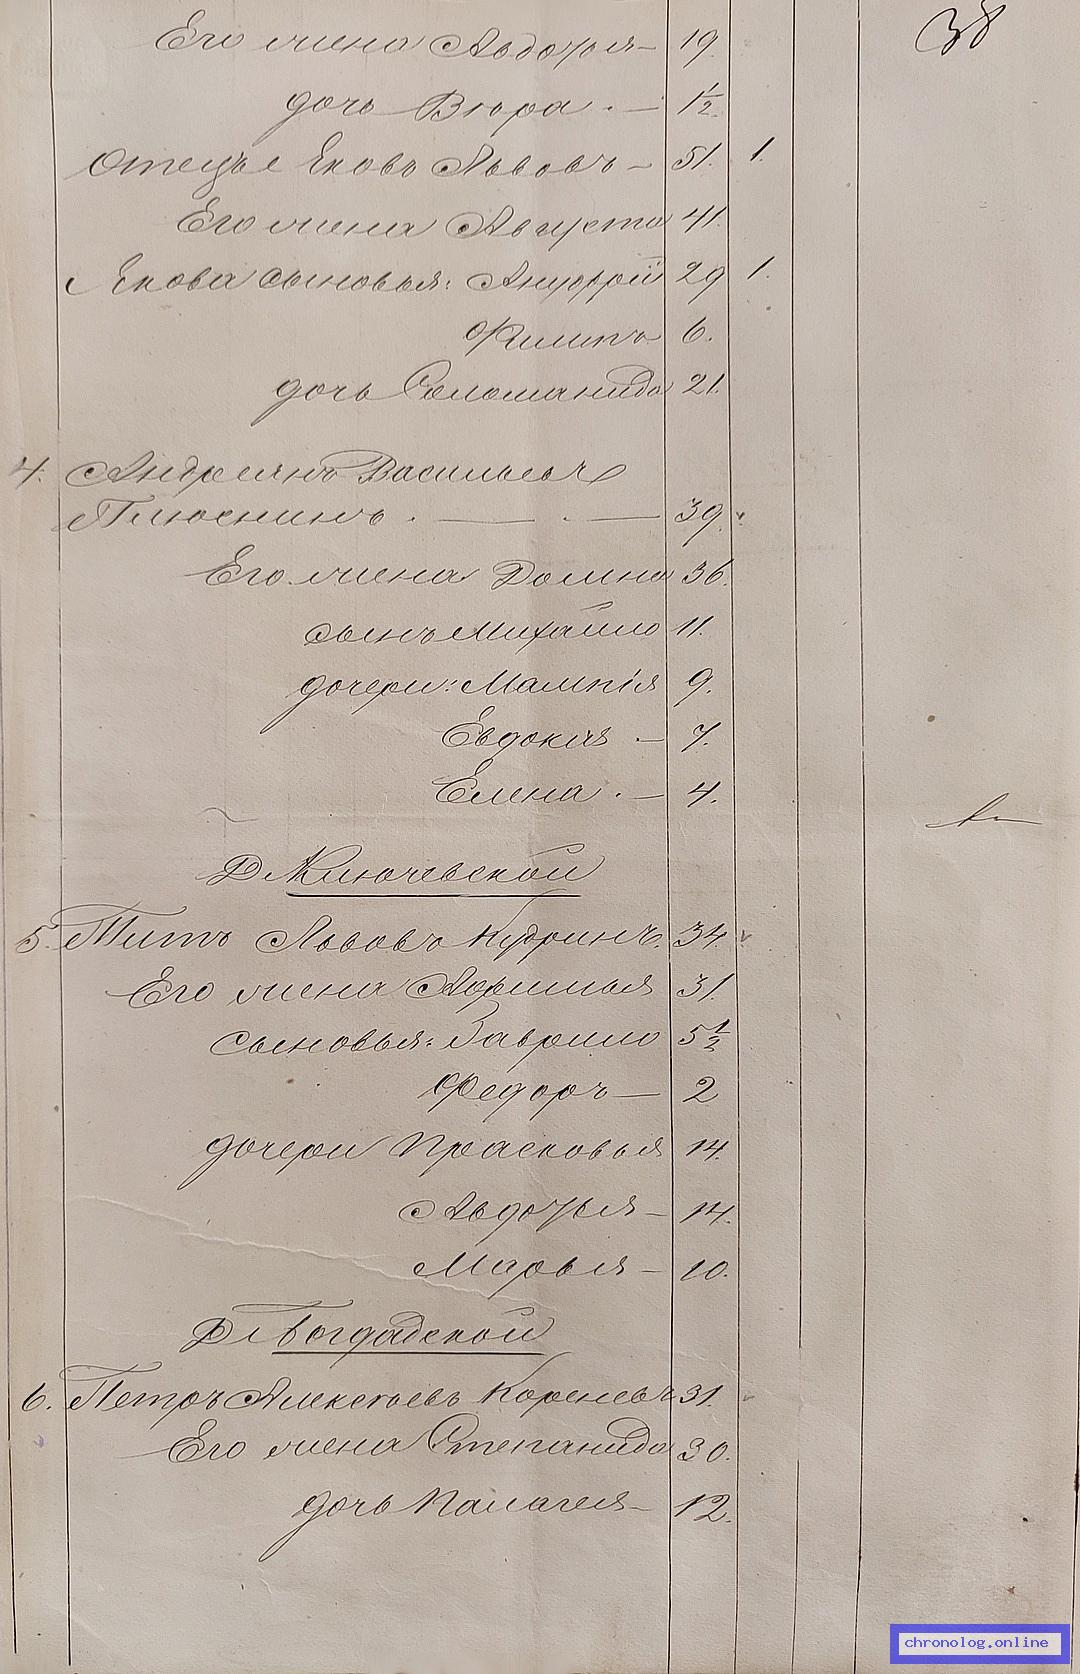 38
Его жена Авдотья — 19.
дочь Вѣра . — 1½.
Отецъ Яковъ Львовъ — 51. 1.
Его жена Августа 41.
Якова сыновья: Андрей 29 1.
Филипъ 6.
дочь Соломанида 21.
4. Андреянъ Васильевъ
Плюснинъ . — . — 39.
Его жена Домна 36.
сынъ Михайло 11.
дочери: Маланія 9.
Евдокия . — 7.
Елена . — 4.
Д Ключевской
5. Титъ Львовъ Кудринъ. 34
Его жена 31.
сыновья: Гаврило 5½
Федоръ — 2
дочери Прасковья 14.
Авдотья — 14.
Марья — 10.
Д Богдадской
6. Петръ Алексѣевъ Кореневъ 31.
Его жена Степанида 30.
дочь Палагея — 12.
chronolog.online